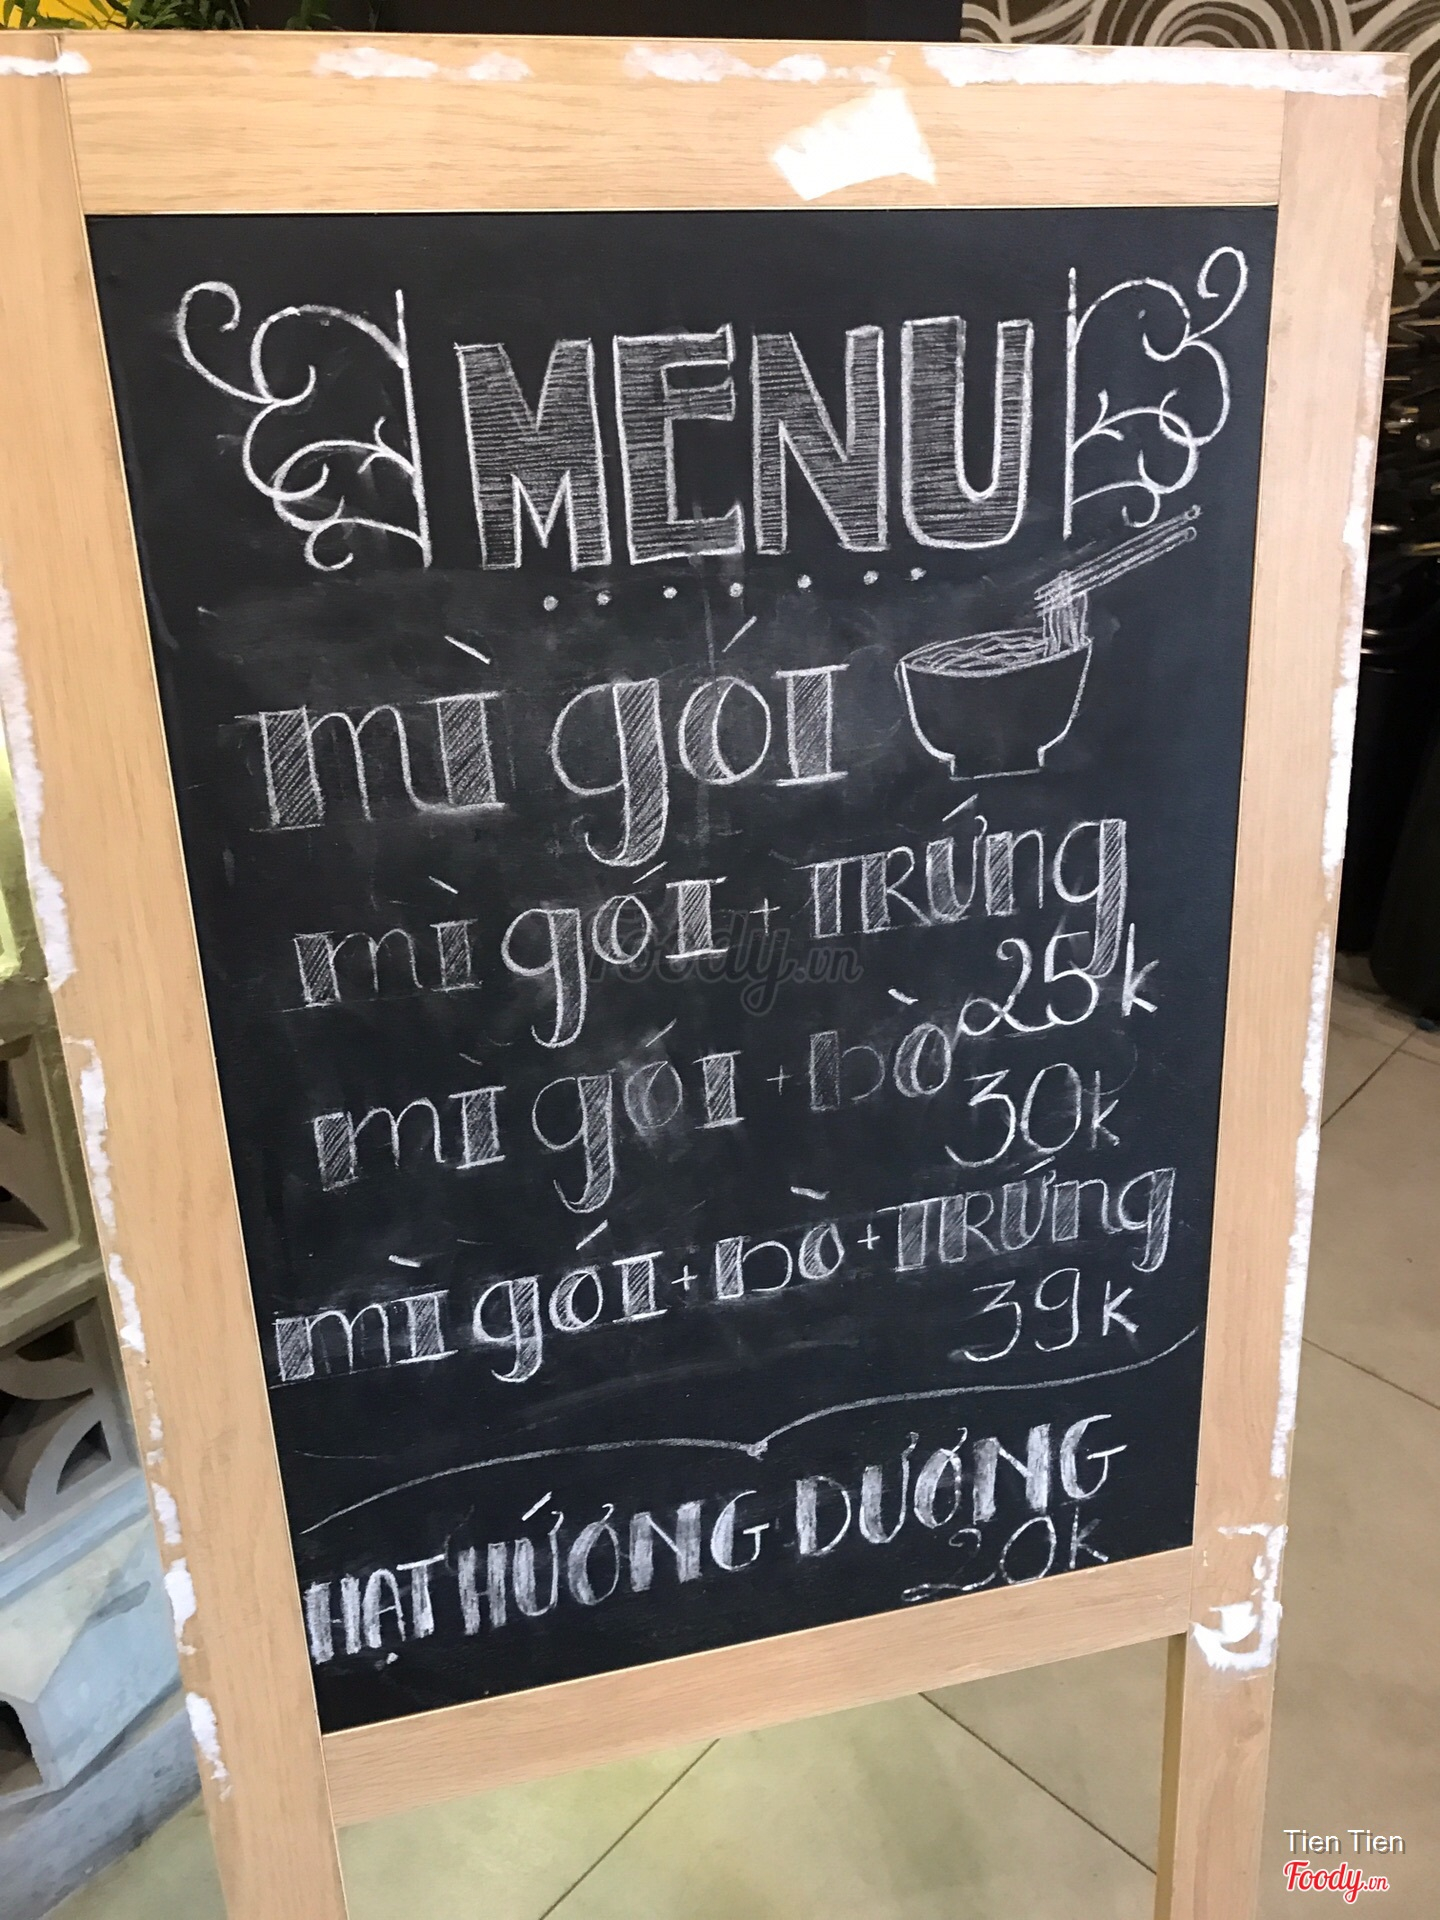 MENU
mì gói
mì gói + TRứng
25k
mì gói + bò
30k
mì gói + bò + TRứng
39k
HẠT HƯỚNG DƯƠNG
20k
Foody.vn
Tien Tien
Foody.vn